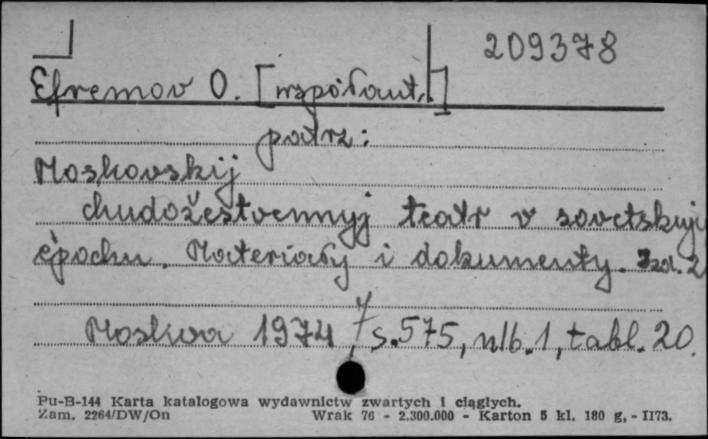 209378
Efremov O. [współaut.]
patrz:
Moskovskij
chudožestvennyj teatr v sovetskuju
èpochu. Materiały i dokumenty. Izd. 2
Moskva 1974, s. 575, nlb. 1, tabl. 20.
Pu-B-144 Karta katalogowa wydawnictw zwartych i ciągłych.
Zam. 2264/DW/On Wrak 76 - 2.300.000 - Karton 5 kl. 180 g, - II73.